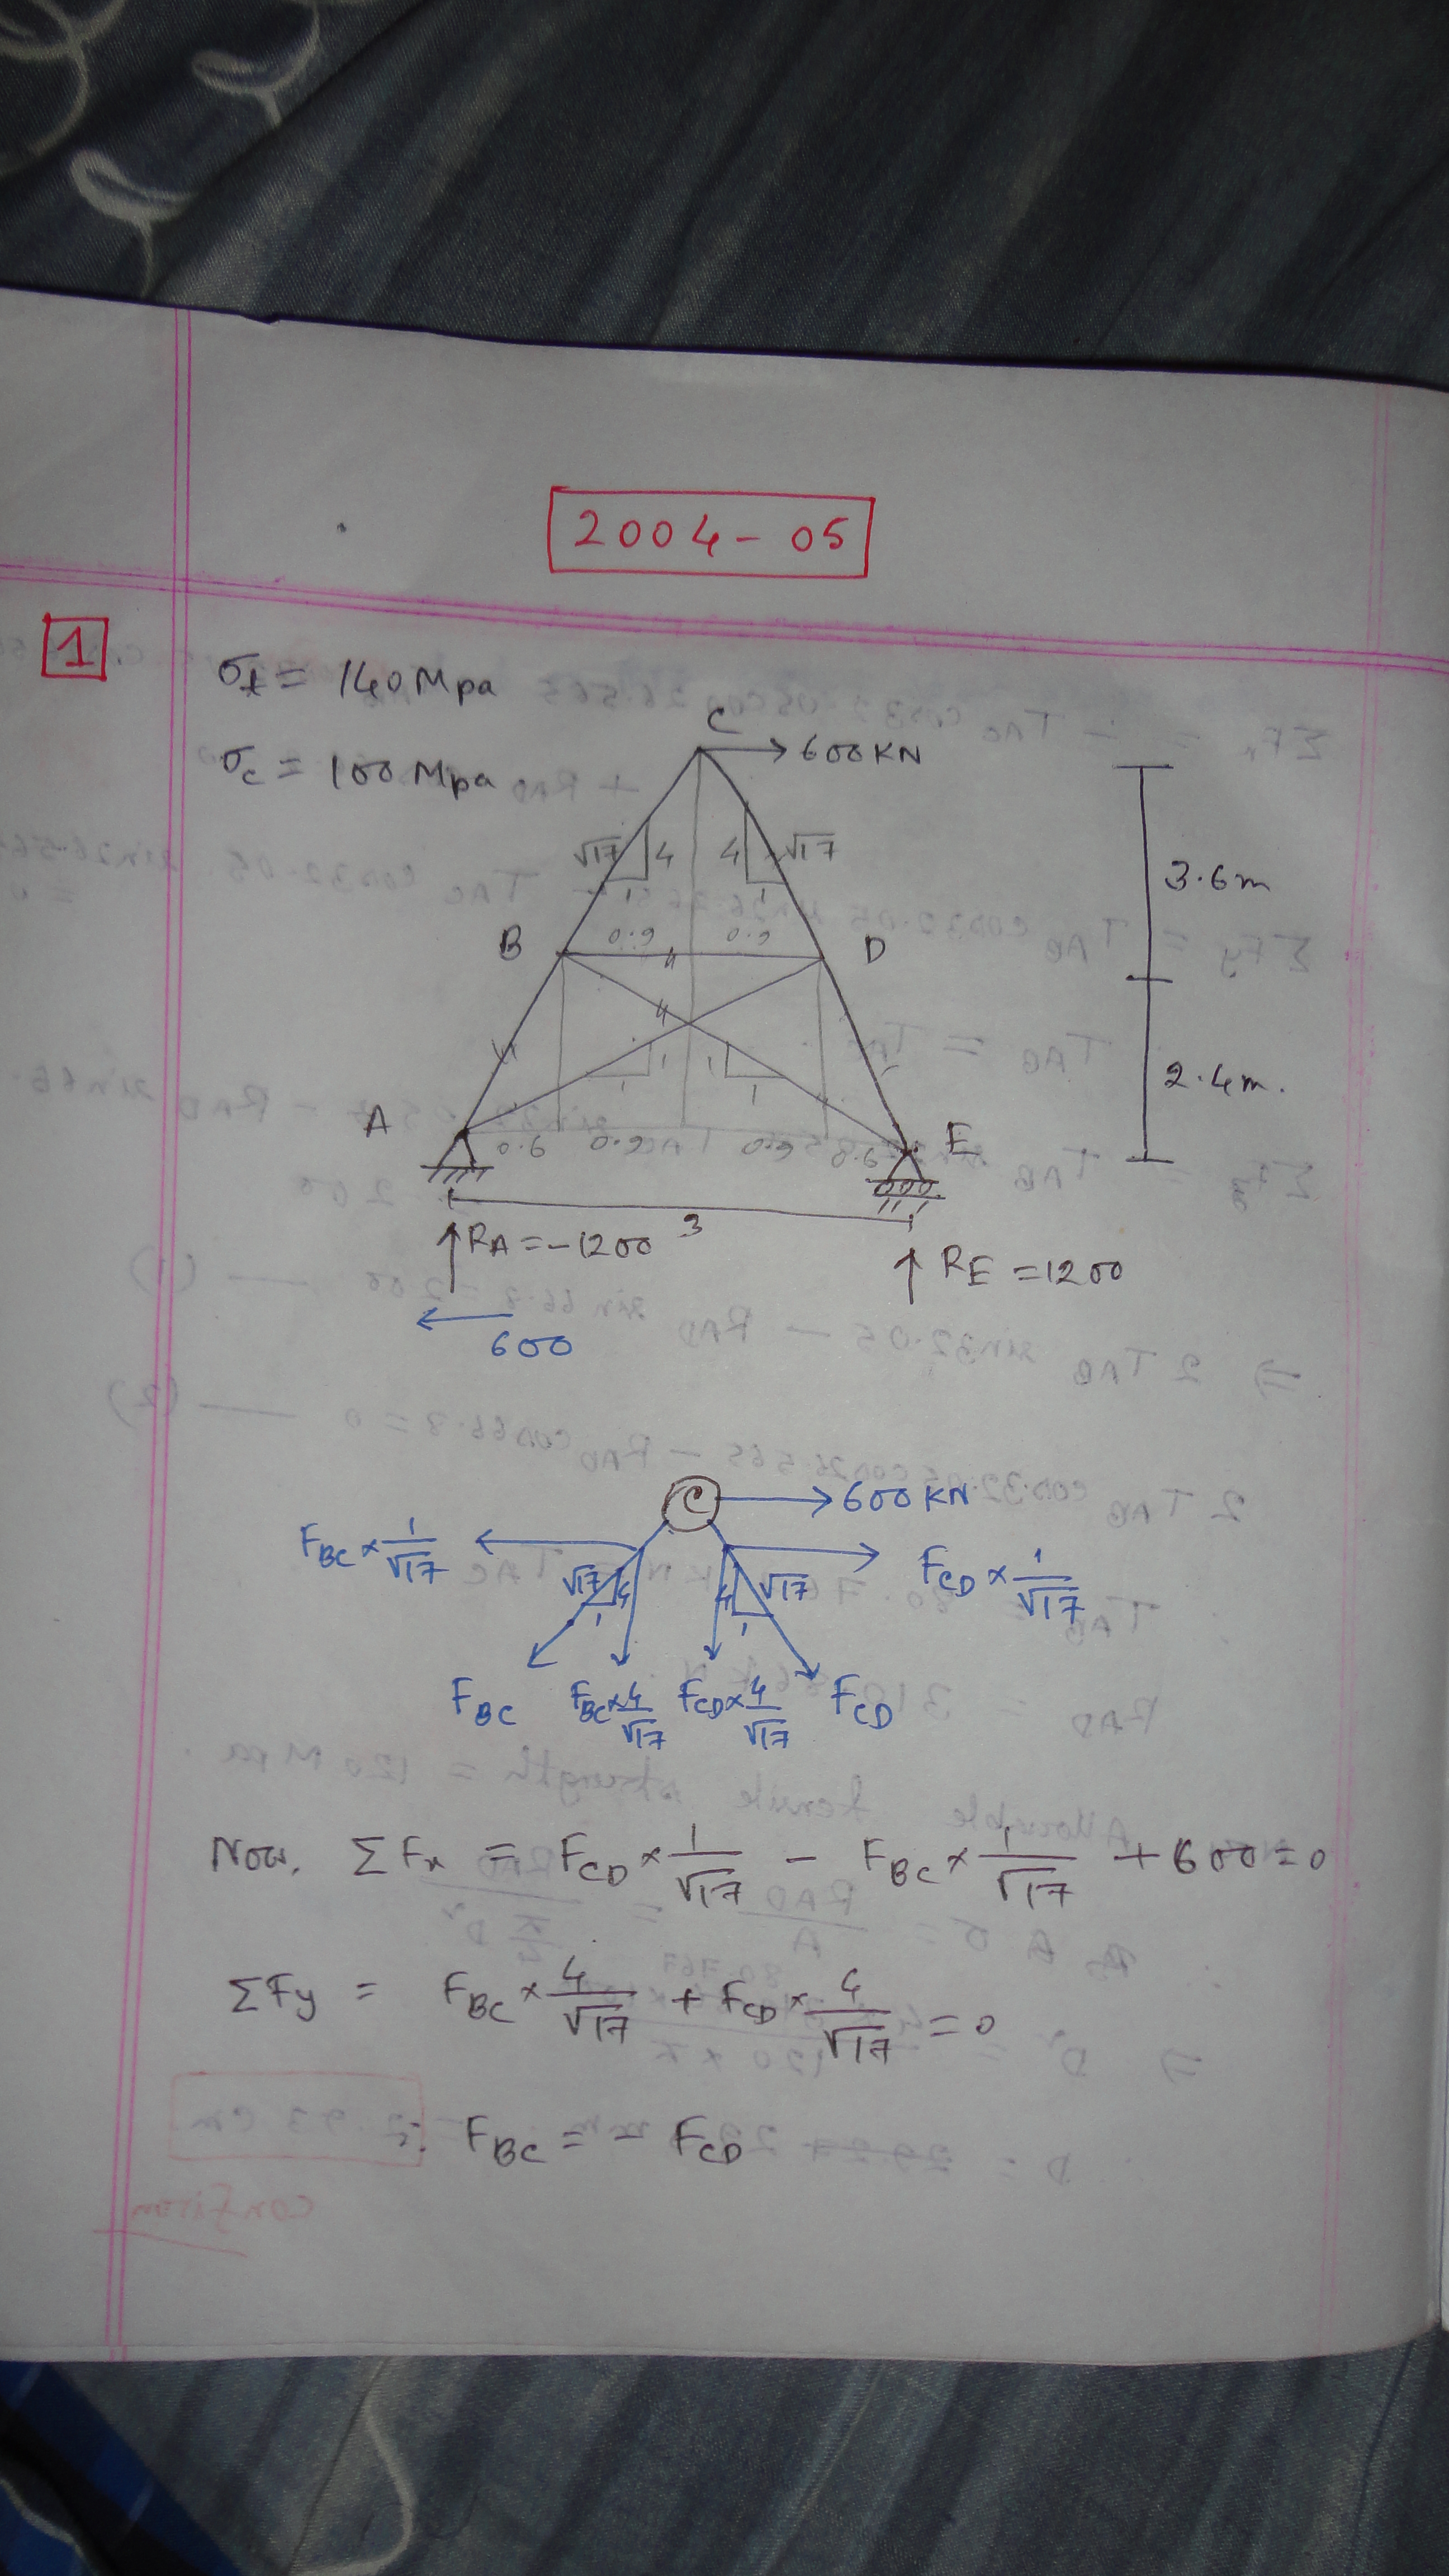 2004-05
1
σt = 140 Mpa
σc = 100 Mpa
C
600 KN
√17 4 4 √17
1 1
3.6m
B 0.9 0.9 D
1 1
1 1
2.4m.
A 0.6 0.9 0.9 0.6 E
3
RA = -1200
RE = 1200
600
C 600 KN
FBC × 1/√17
FCD × 1/√17
√17 4 4 √17
1 1
FBC FBC × 4/√17 FCD × 4/√17 FCD
Now, ΣFx = FCD × 1/√17 - FBC × 1/√17 + 600 = 0
ΣFy = FBC × 4/√17 + FCD × 4/√17 = 0
∴ FBC = - FCD